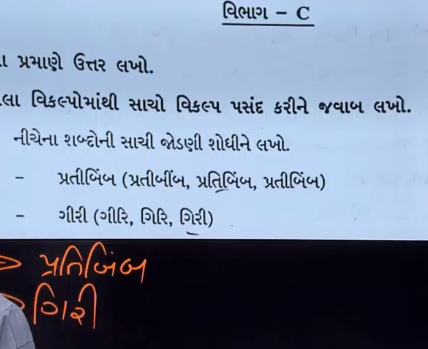 વિભાગ – C
ા પ્રમાણે ઉત્તર લખો.
લા વિકલ્પોમાંથી સાચો વિકલ્પ પસંદ કરીને જવાબ લખો.
નીચેના શબ્દોની સાચી જોડણી શોધીને લખો.
– પ્રતીબિંબ (પ્રતીબીંબ, પ્રતિબિંબ, પ્રતીબિંબ)
– ગીરી (ગીરિ, ગિરિ, ગિરી)
પ્રતિબિંબ
ગિરી